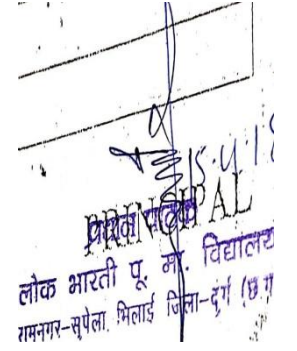 15.4.18
PRINCIPAL
प्रधान पाठक
लोक भारती पू. मा. विद्यालय
रामनगर-सुपेला, भिलाई जिला-दुर्ग (छ.ग